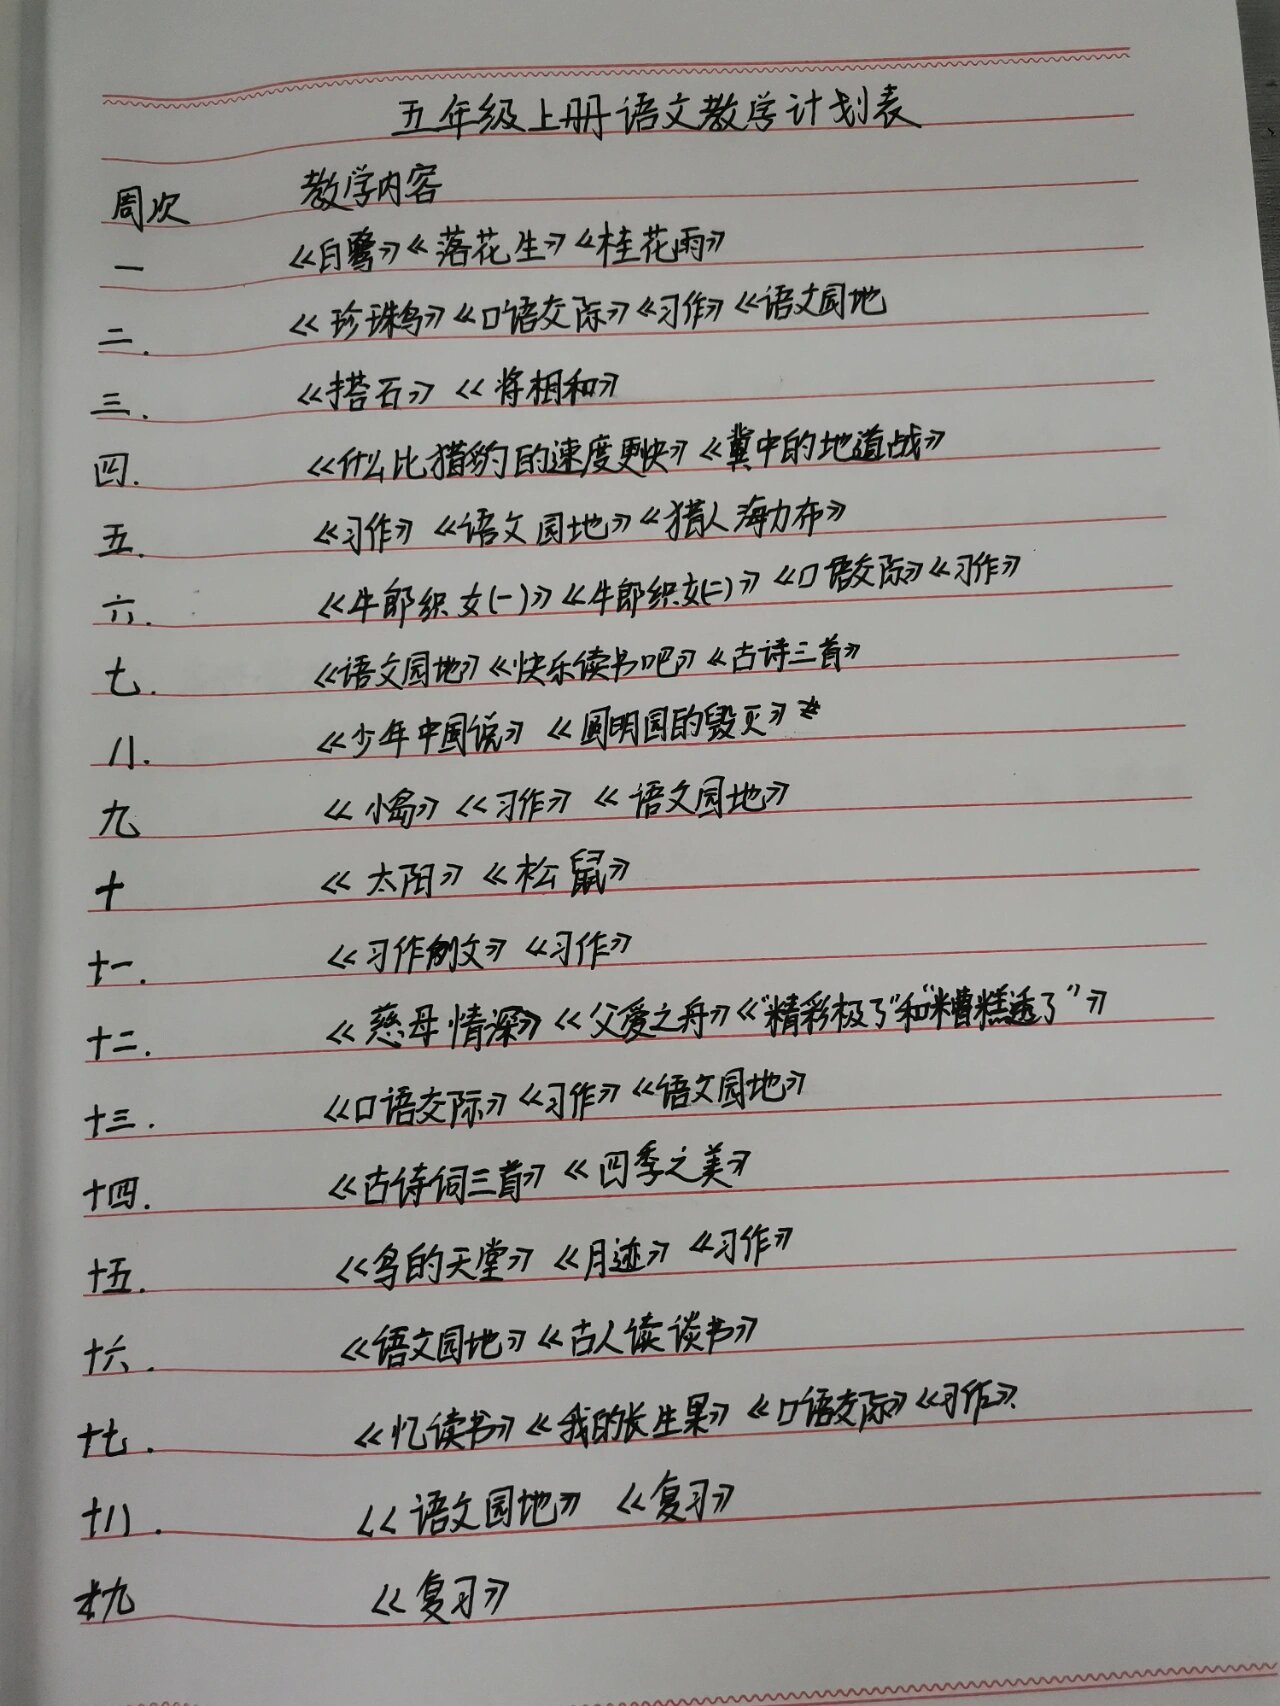 五年级上册语文教学计划表
周次 教学内容
一 《白鹭》《落花生》《桂花雨》
二. 《珍珠鸟》《口语交际》《习作》《语文园地
三. 《搭石》《将相和》
四. 《什么比猎豹的速度更快》《冀中的地道战》
五. 《习作》《语文园地》《猎人海力布》
六. 《牛郎织女(一)》《牛郎织女(二)》《口语交际》《习作》
七. 《语文园地》《快乐读书吧》《古诗三首》
八. 《少年中国说》《圆明园的毁灭》*
九 《小岛》《习作》《语文园地》
十 《太阳》《松鼠》
十一. 《习作例文》《习作》
十二. 《慈母情深》《父爱之舟》《“精彩极了”和“糟糕透了”》
十三. 《口语交际》《习作》《语文园地》
十四. 《古诗词三首》《四季之美》
十五. 《鸟的天堂》《月迹》《习作》
十六. 《语文园地》《古人读谈书》
十七. 《忆读书》《我的长生果》《口语交际》《习作》.
十八. 《语文园地》《复习》
十九 《复习》